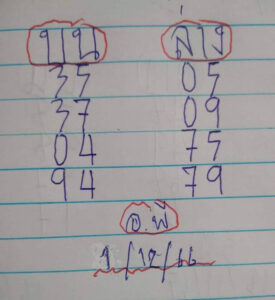 บน ล่าง
35 05
37 09
04 75
94 79
อ.พี
1/12/66